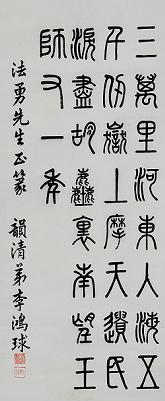 三萬里河東入海五
千仞嶽上摩天遺民
淚盡胡塵裏南望王
師又一年
法勇先生正篆 韻清弟李鴻球